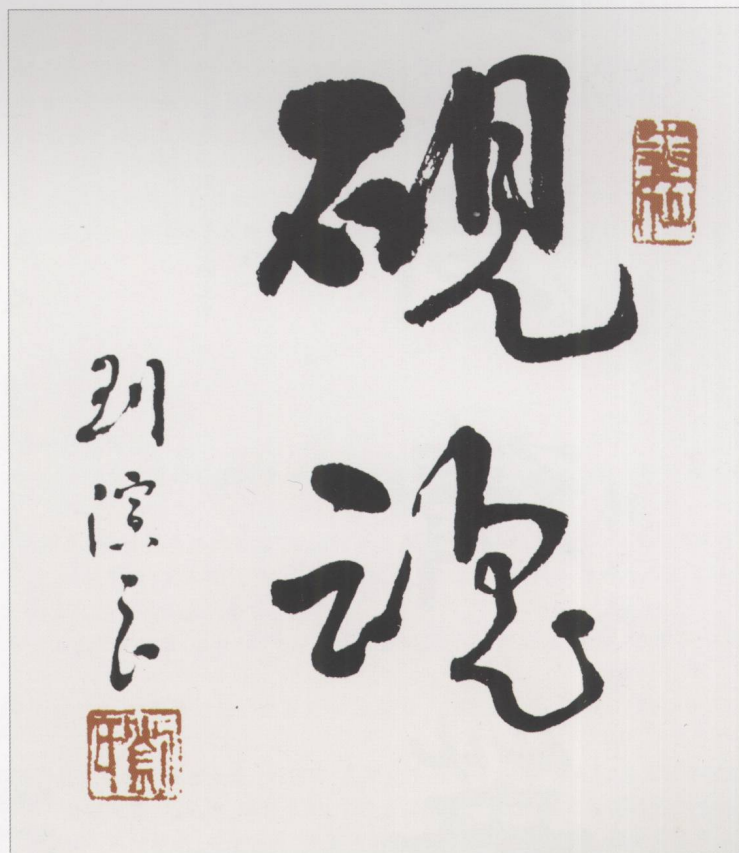 砚魂
刘演良